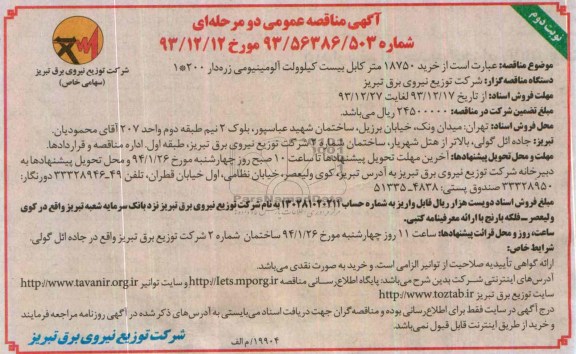 نوبت دوم
آگهی مناقصه عمومی دو مرحله‌ای
شماره ۹۳/۵۶۳۸۶/۵۰۳ مورخ ۹۳/۱۲/۱۲
شرکت توزیع نیروی برق تبریز
(سهامی خاص)
موضوع مناقصه: عبارت است از خرید ۱۸۷۵۰ متر کابل بیست کیلوولت آلومینیومی زره‌دار ۲۰۰*۱
دستگاه مناقصه‌گزار: شرکت توزیع نیروی برق تبریز
مهلت فروش اسناد: از تاریخ ۹۳/۱۲/۱۷ لغایت ۹۳/۱۲/۲۷
مبلغ تضمین شرکت در مناقصه: ۲۴۵۰۰۰۰۰۰ ریال می‌باشد.
محل فروش اسناد: تهران: میدان ونک، خیابان برزیل، ساختمان شهید عباسپور، بلوک ۲ نیم طبقه دوم واحد ۲۰۷ آقای محمودیان.
تبریز: جاده ائل گولی، بالاتر از هتل شهریار، ساختمان شماره ۲ شرکت توزیع نیروی برق تبریز، طبقه اول، اداره مناقصه و قراردادها.
مهلت و محل تحویل پیشنهادها: آخرین مهلت تحویل پیشنهادها تا ساعت ۱۰ صبح روز چهارشنبه مورخ ۹۴/۱/۲۶ و محل تحویل پیشنهادها به
دبیرخانه شرکت توزیع نیروی برق تبریز به آدرس تبریز، کوی ولیعصر، خیابان نظامی، اول خیابان قطران، تلفن ۴۹-۳۳۳۲۸۹۴۶ دورنگار:
۳۳۳۲۸۹۵۰ صندوق پستی: ۴۸۳۸-۵۱۳۳۵
مبلغ فروش اسناد دویست هزار ریال قابل واریز به شماره حساب به نام شرکت توزیع نیروی برق تبریز نزد بانک سرمایه شعبه تبریز واقع در کوی
ولیعصر ـ فلکه بارنج با ارائه معرفینامه کتبی.
ساعت، روز و محل قرائت پیشنهادها: ساعت ۱۱ روز چهارشنبه مورخ ۹۴/۱/۲۶ ساختمان شماره ۲ شرکت توزیع برق تبریز واقع در جاده ائل گولی.
شرایط خاص:
ارائه گواهی تأییدیه صلاحیت از توانیر الزامی است، و خرید به صورت نقدی می‌باشد.
آدرس‌های اینترنتی شرکت بدین شرح می‌باشد: پایگاه اطلاع‌رسانی مناقصه http://Iets.mporg.ir و سایت توانیر http://www.tavanir.org.ir
سایت توزیع برق تبریز http://www.toztab.ir
درج آگهی در سایت فقط برای اطلاع‌رسانی بوده و مناقصه‌گران جهت دریافت اسناد می‌بایستی به آدرس‌های ذکر شده در آگهی روزنامه مراجعه فرمایند
و خرید از طریق اینترنت قابل قبول نمی‌باشد.
شرکت توزیع نیروی برق تبریز
۱۹۹۰۴/م الف